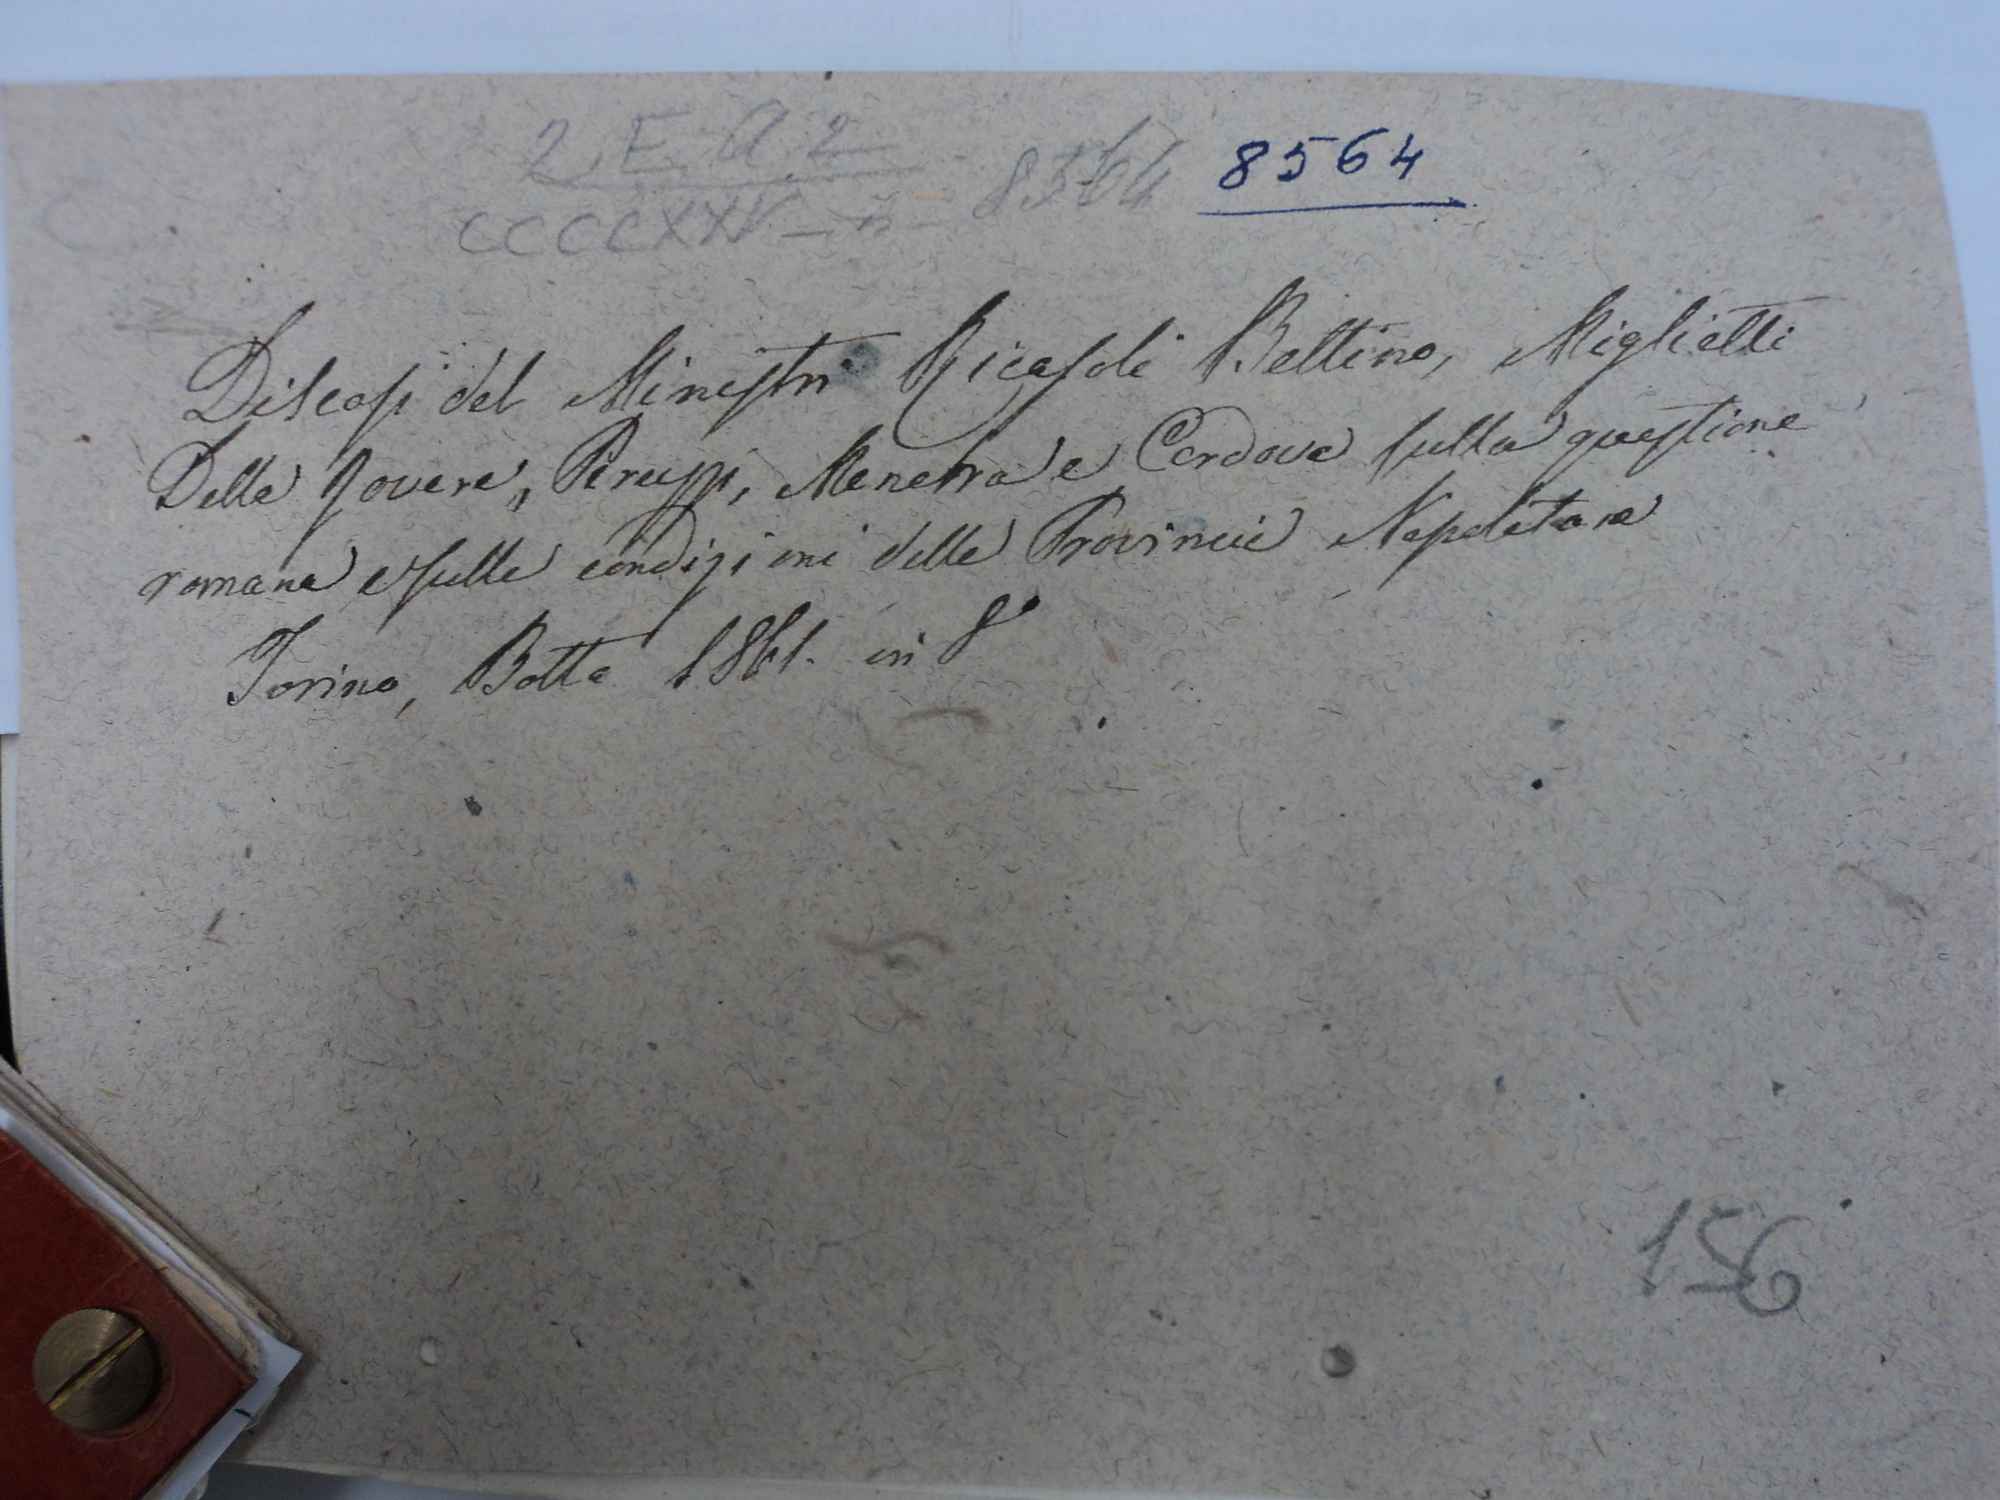 2. E. A. 2
CCCCXXV - n - 8564 8564
Discorsi del Ministri Ricasoli Bettino, Miglietti
Della Rovere, Peruzzi, Menebra e Cordova sulla questione
romana e sulle condizioni delle Provincie Napoletane
Torino, Botta 1861. in 8°
156